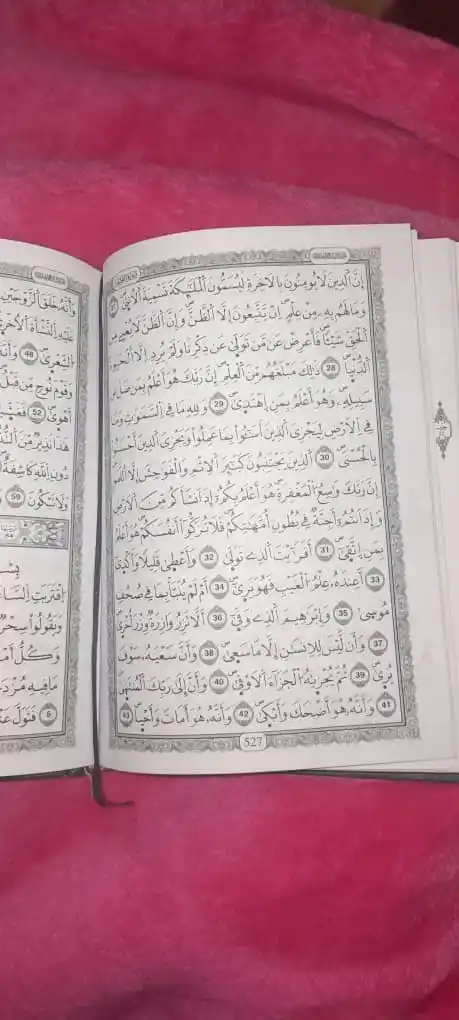 إِنَّ اَلذِينَ لَا يُومِنُونَ بِالَاخِرَةِ لَيُسَمُّونَ اَلْمَلَٰٓئِكَةَ تَسْمِيَةَ اَلُانثٜيٰ
وَمَا لَهُم بِهِۦ مِنْ عِلْمٍ اِنْ يَّتَّبِعُونَ إِلَّا اَلظَّنَّ وَإِنَّ اَلظَّنَّ لَا يُغْنِے مِنَ
اَلْحَقِّ شَيْـٔاً فَأَعْرِضْ عَن مَّن تَوَلّٜيٰ عَن ذِكْرِنَا وَلَمْ يُرِدِ اِلَّا اَلْحَيَوٰةَ
اَلدُّنْيٜا 28 ذَٰلِكَ مَبْلَغُهُم مِّنَ اَلْعِلْمِ إِنَّ رَبَّكَ هُوَ أَعْلَمُ بِمَن ضَلَّ عَن
سَبِيلِهِۦ وَهُوَ أَعْلَمُ بِمَنِ اِهْتَدٜيٰ 29 وَلِلهِ مَا فِے اِلسَّمَٰوَٰتِ وَمَا
فِے اِلَارْضِ لِيَجْزِيَ اَلذِينَ أَسَٰٓـُٔواْ بِمَا عَمِلُواْ وَيَجْزِيَ اَلذِينَ أَحْسَنُواْ
بِالْحُسْنَي 30 اَلذِينَ يَجْتَنِبُونَ كَبَٰٓئِرَ اَلِاثْمِ وَالْفَوَٰحِشَ إِلَّا اَللَّمَمَ
إِنَّ رَبَّكَ وَٰسِعُ اُلْمَغْفِرَةِ هُوَ أَعْلَمُ بِكُمُۥٓ إِذَ اَنشَأَكُم مِّنَ اَلَارْضِ
وَإِذَ اَنتُمُۥٓ أَجِنَّةٌ فِے بُطُونِ أُمَّهَٰتِكُمْ فَلَا تُزَكُّوٓاْ أَنفُسَكُمْ هُوَ أَعْلَمُ
بِمَنِ اِتَّقٜيٰ 31 أَفَرَٰٓيْتَ اَلذِے تَوَلّٜيٰ 32 وَأَعْطٜيٰ قَلِيلاً وَأَكْدٜيٰٓ
33 أَعِندَهُۥ عِلْمُ اُلْغَيْبِ فَهُوَ يَرٜيٰٓ 34 أَمْ لَمْ يُنَبَّأْ بِمَا فِے صُحُفِ
مُوسٜيٰ 35 وَإِبْرَٰهِيمَ اَلذِے وَفّٜيٰٓ 36 أَلَّا تَزِرُ وَازِرَةٌ وِزْرَ أُخْرٜيٰ
37 وَأَن لَّيْسَ لِلِانسَٰنِ إِلَّا مَا سَعٜيٰ 38 وَأَنَّ سَعْيَهُۥ سَوْفَ
يُرٜيٰ 39 ثُمَّ يُجْزٜيٰهُ اُلْجَزَآءَ اَلَاوْفٜيٰ 40 وَأَنَّ إِلَيٰ رَبِّكَ اَلْمُنتَهٜيٰ
41 وَأَنَّهُۥ هُوَ أَضْحَكَ وَأَبْكٜيٰ 42 وَأَنَّهُۥ هُوَ أَمَاتَ وَأَحْيٜا 43
527
وَأَنَّهُۥ خَلَقَ اَلزَّوْجَيْنِ
عَلَيْهِ اِلنَّشْأَةَ اَلُاخْرٜيٰ
اَلشِّعْرٜيٰ 48 وَأَنَّهُ
وَقَوْمَ نُوحٍ مِّن قَبْلُ
أَهْوٜيٰ 52 فَغَشّ
هَٰذَا نَذِيرٌ مِّنَ اَلنُّذُ
دُونِ اِللَّهِ كَاشِفَةٌ
وَلَا تَبْكُونَ 59
بِسْ
اِقْتَرَبَتِ اِلسَّا
وَيَقُولُواْ سِحْرٌ
وَكُلُّ أَمْ
مَا فِيهِ مُزْدَ
5 فَتَوَلَّ عَنْ